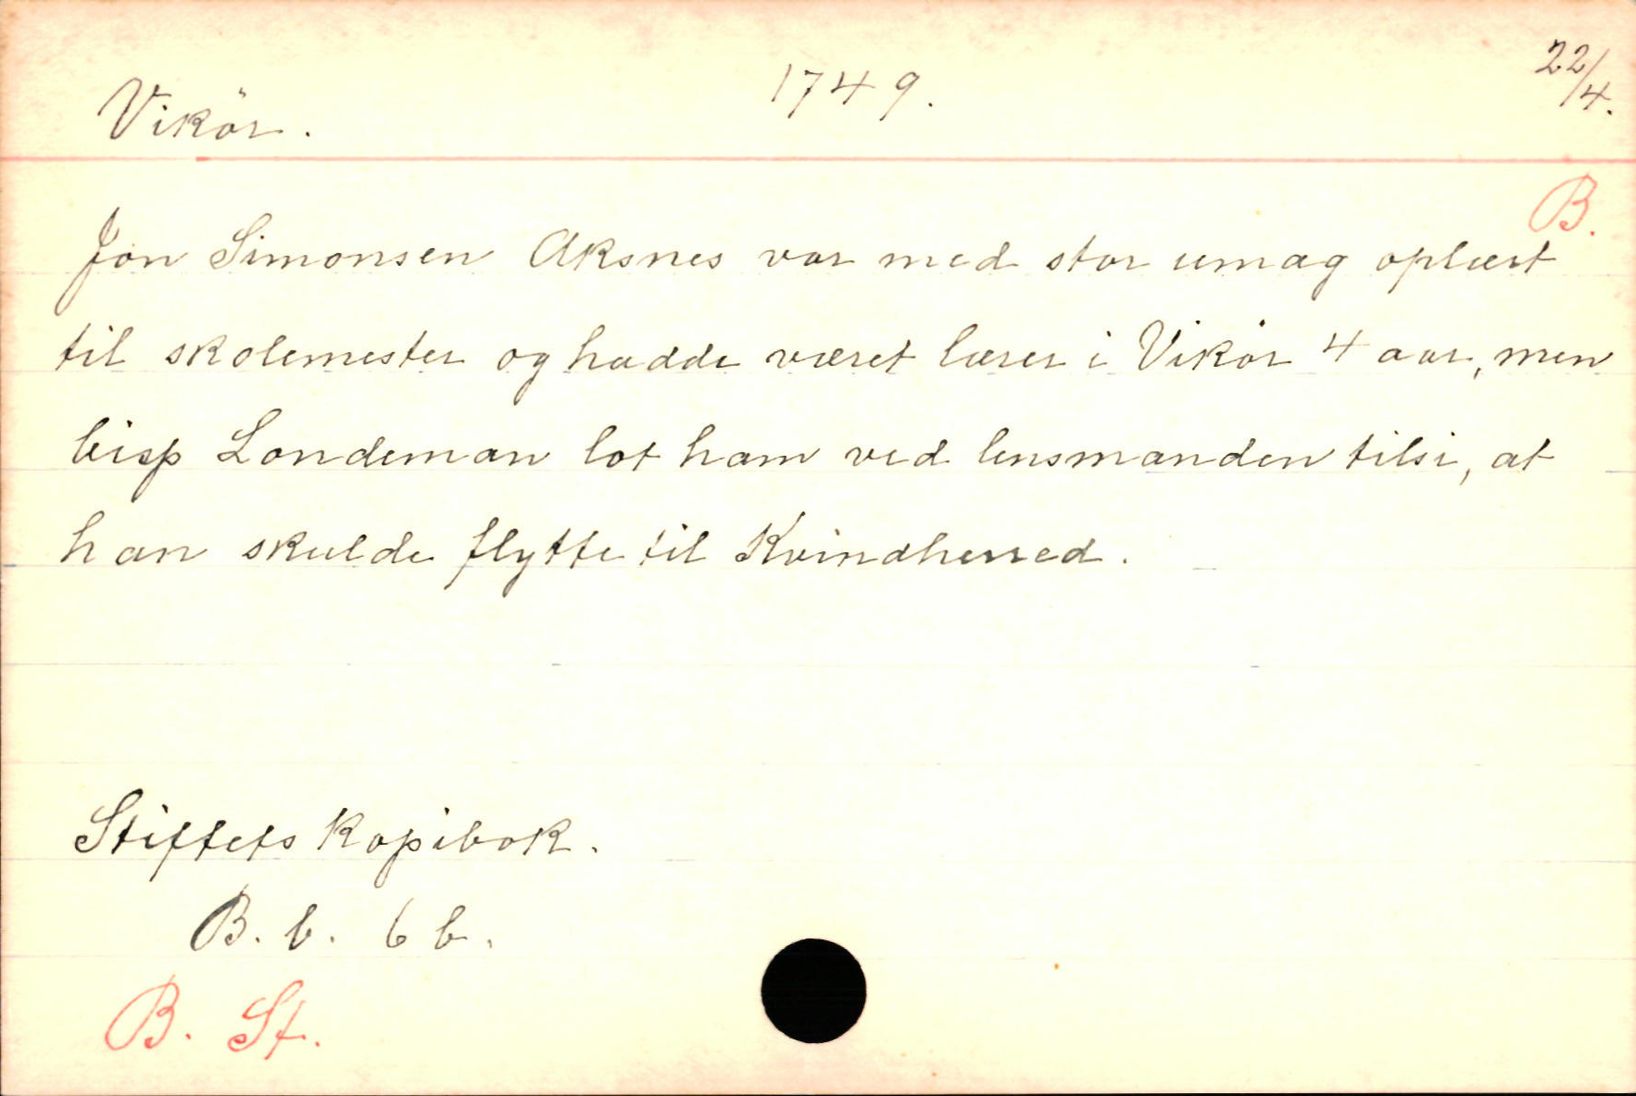 Vikör. 1749. 22/4.
B.
Jon Simonsen Aksnes var med stor umag oplært
til skolemester og hadde været lærer i Vikör 4 aar, men
bisp Londeman lot ham ved lensmanden tilsi, at
han skulde flytte til Kvindherred.
Stiftets kopibok.
B. b. 6 b.
B. St.